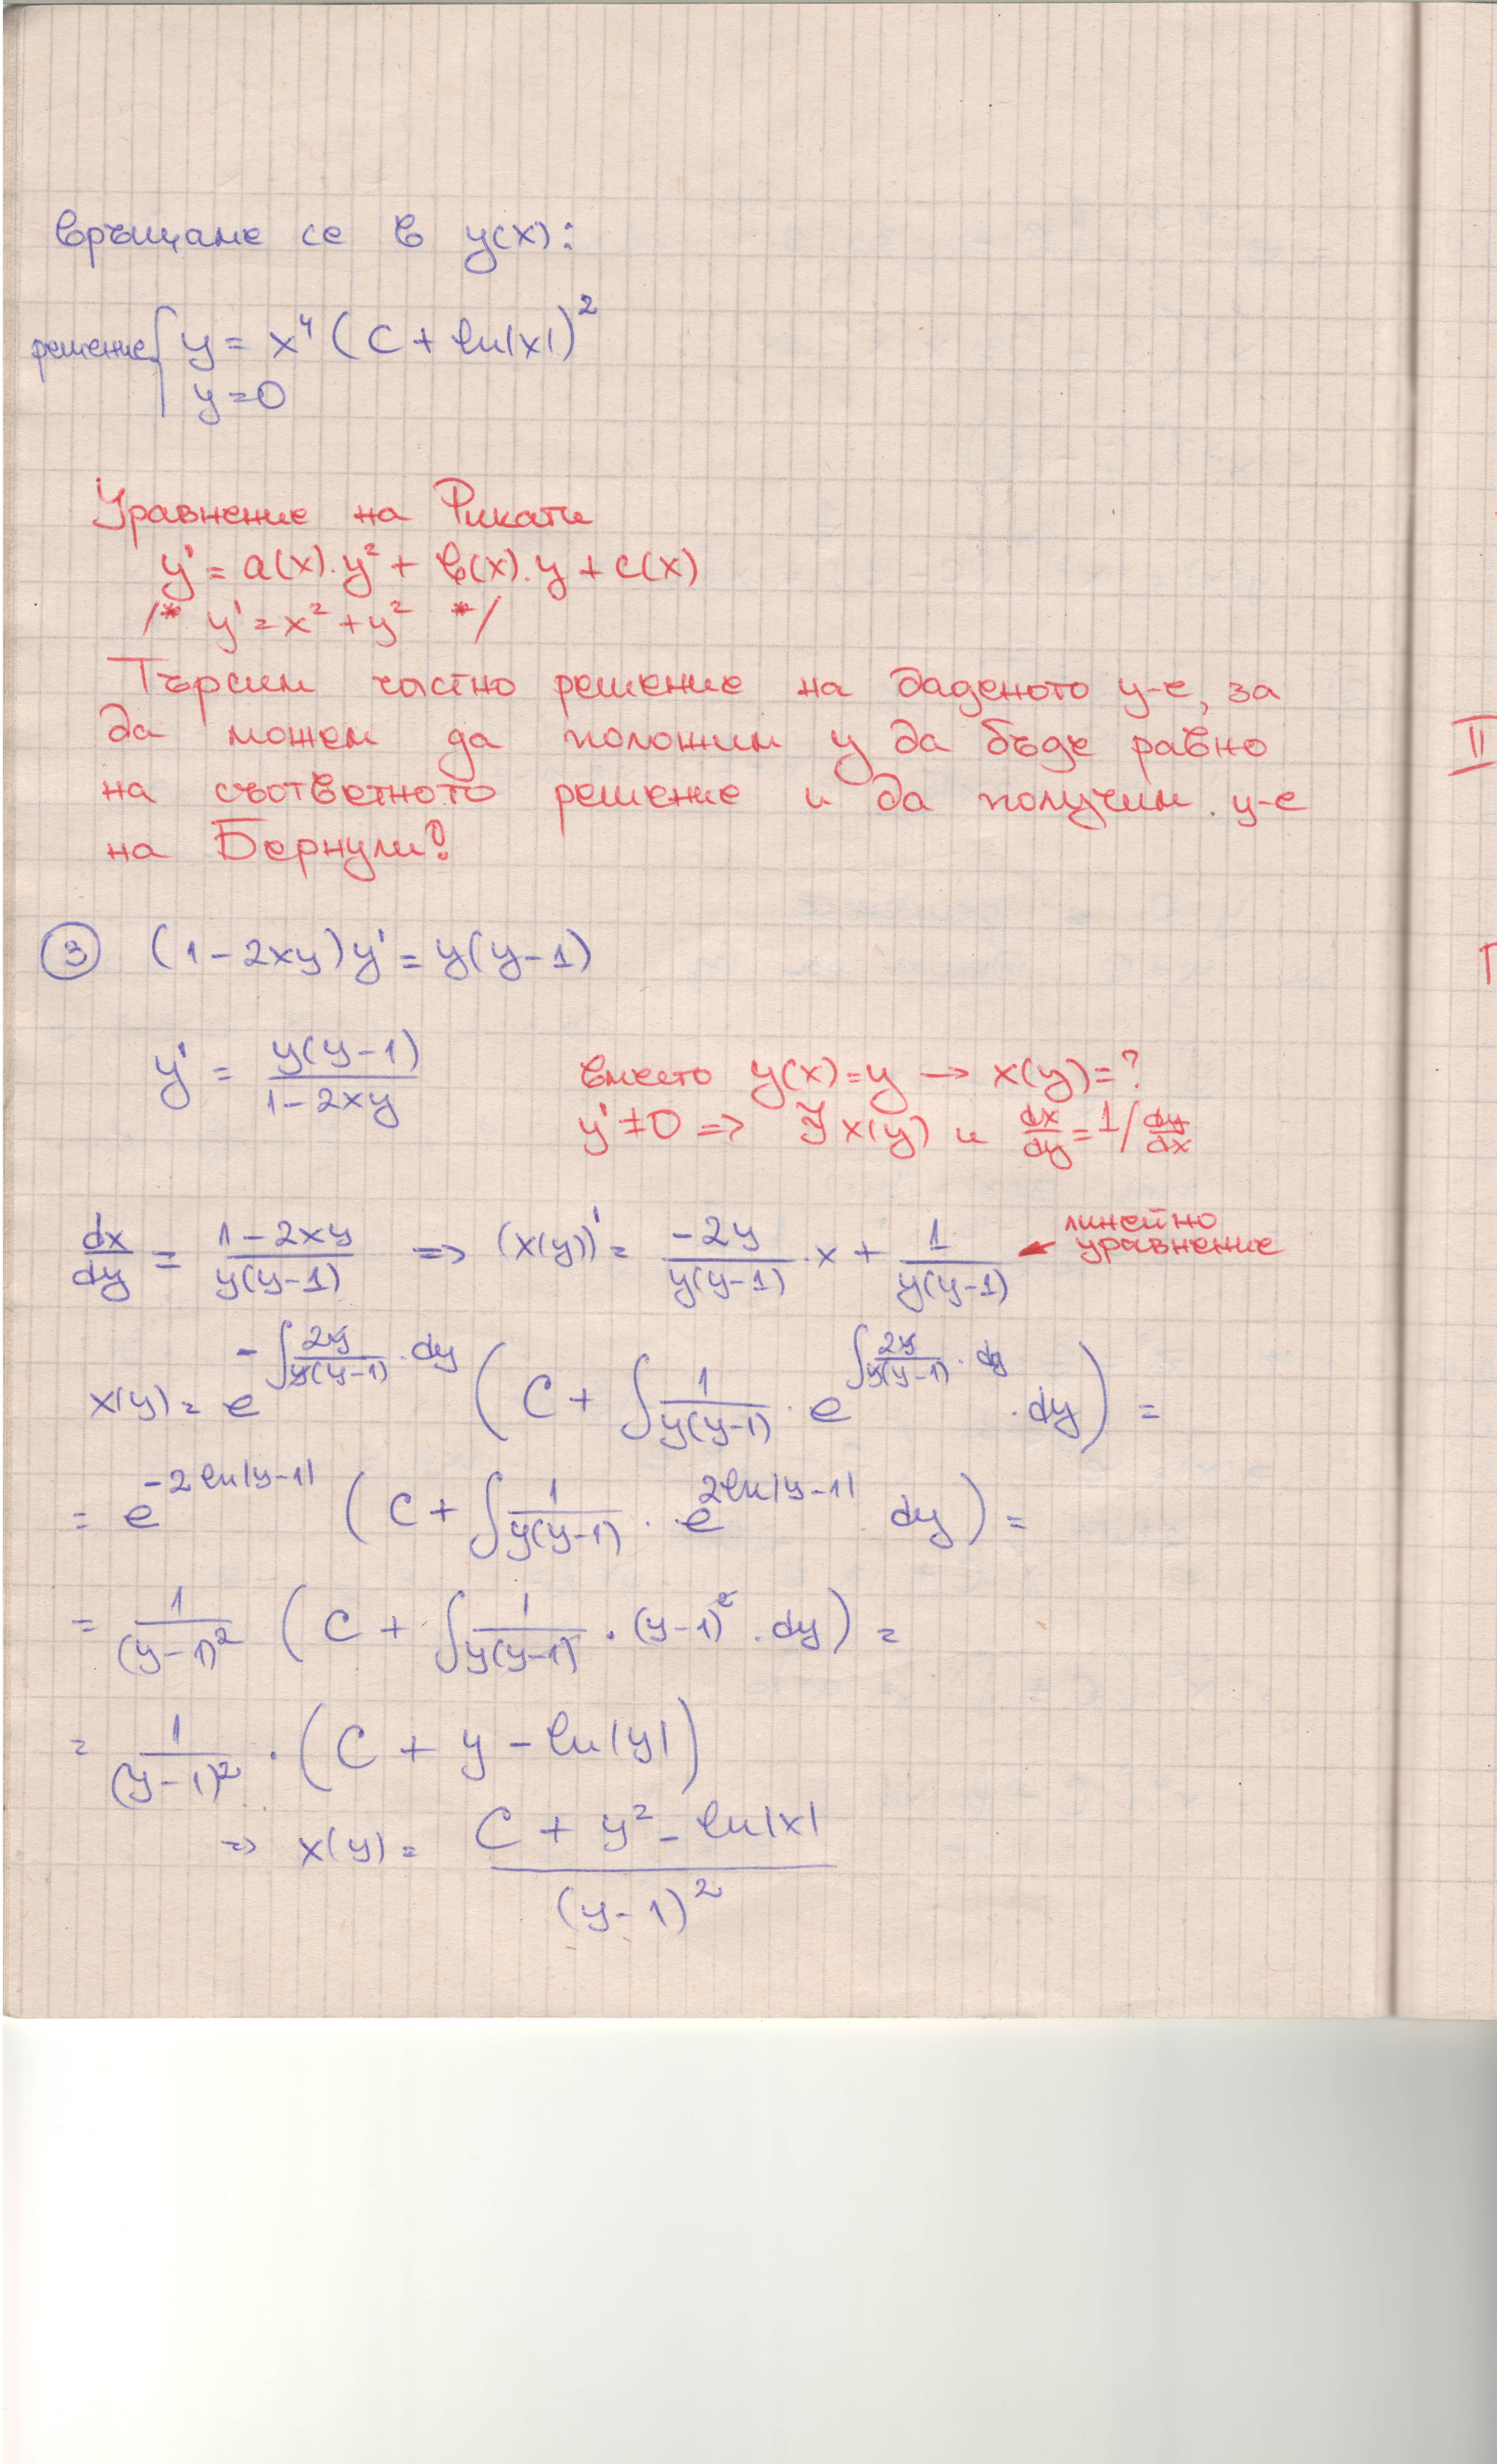 връщаме се в y(x):
решение { y = x⁴ (C + ln|x|)²
y = 0
Уравнение на Рикати
y' = a(x).y² + b(x).y + c(x)
/* y' = x² + y² */
Търсим частно решение на даденото у-е, за
да можем да положим y да бъде равно
на съответното решение и да получим у-е
на Бернули!
③ (1 - 2xy)y' = y(y-1)
y' = \frac{y(y-1)}{1-2xy}
вместо y(x)=y → x(y)=?
y' ≠ 0 => ∃ x(y) и \frac{dx}{dy} = 1/\frac{dy}{dx}
\frac{dx}{dy} = \frac{1-2xy}{y(y-1)} => (x(y))' = \frac{-2y}{y(y-1)}.x + \frac{1}{y(y-1)} линейно
уравнение
x(y) = e^{-∫\frac{2y}{y(y-1)}.dy} (C + ∫\frac{1}{y(y-1)}.e^{∫\frac{2y}{y(y-1)}.dy}.dy) =
= e^{-2ln|y-1|} (C + ∫\frac{1}{y(y-1)}.e^{2ln|y-1|} dy) =
= \frac{1}{(y-1)²} (C + ∫\frac{1}{y(y-1)}.(y-1)².dy) =
= \frac{1}{(y-1)²}.(C + y - ln|y|)
=> x(y) = \frac{C + y² - ln|x|}{(y-1)²}
II